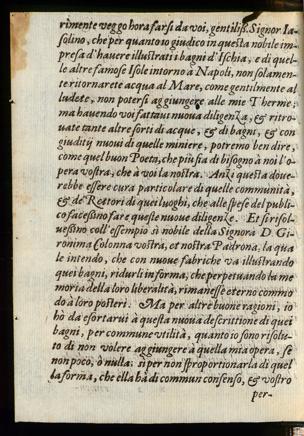 rimente veggo hora farsi da voi, gentiliss. Signor Ia-
solino, che per quanto io giudico in questa nobile im-
presa d'hauere illustrati i bagni d'Ischia, e di quel-
le altre famose Isole intorno à Napoli, non solamen-
te ritornarete acqua al Mare, come gentilmente al
ludete, non potersi aggiungere alle mie Therme;
ma hauendo voi fattaui nuoua diligenza, & ritro-
uate tante altre sorti di acque, & di bagni, & con
giuditij nuoui di quelle miniere, potremo ben dire,
come quel buon Poeta, che piu sia di bisogno à noi l'o-
pera vostra, che à voi la nostra. Anzi questa doue-
rebbe essere cura particolare di quelle communità,
& de' Rettori di quei luoghi, che alle spese del publi-
co facessino fare queste nuoue diligenze. Et si risol-
uessino coll'essempio sì nobile della Signora D. Gi-
ronima Colonna vostra, et nostra Padrona, la qua
le intendo, che con nuoue fabriche va illustrando
quei bagni, ridurli in forma, che perpetuando la me
moria della loro liberalità, rimanesse eterno commo
do à loro posteri. Ma per altre buone ragioni, io
hò da esortarui à questa nuoua descrittione di quei
bagni, per commune vtilità, quanto io sono risolu-
to di non volere aggiungere à quella mia opera, se
non poco, ò nulla: sì per non sproportionarla di quel
la forma, che ella hà di commun consenso, & vostro
per-